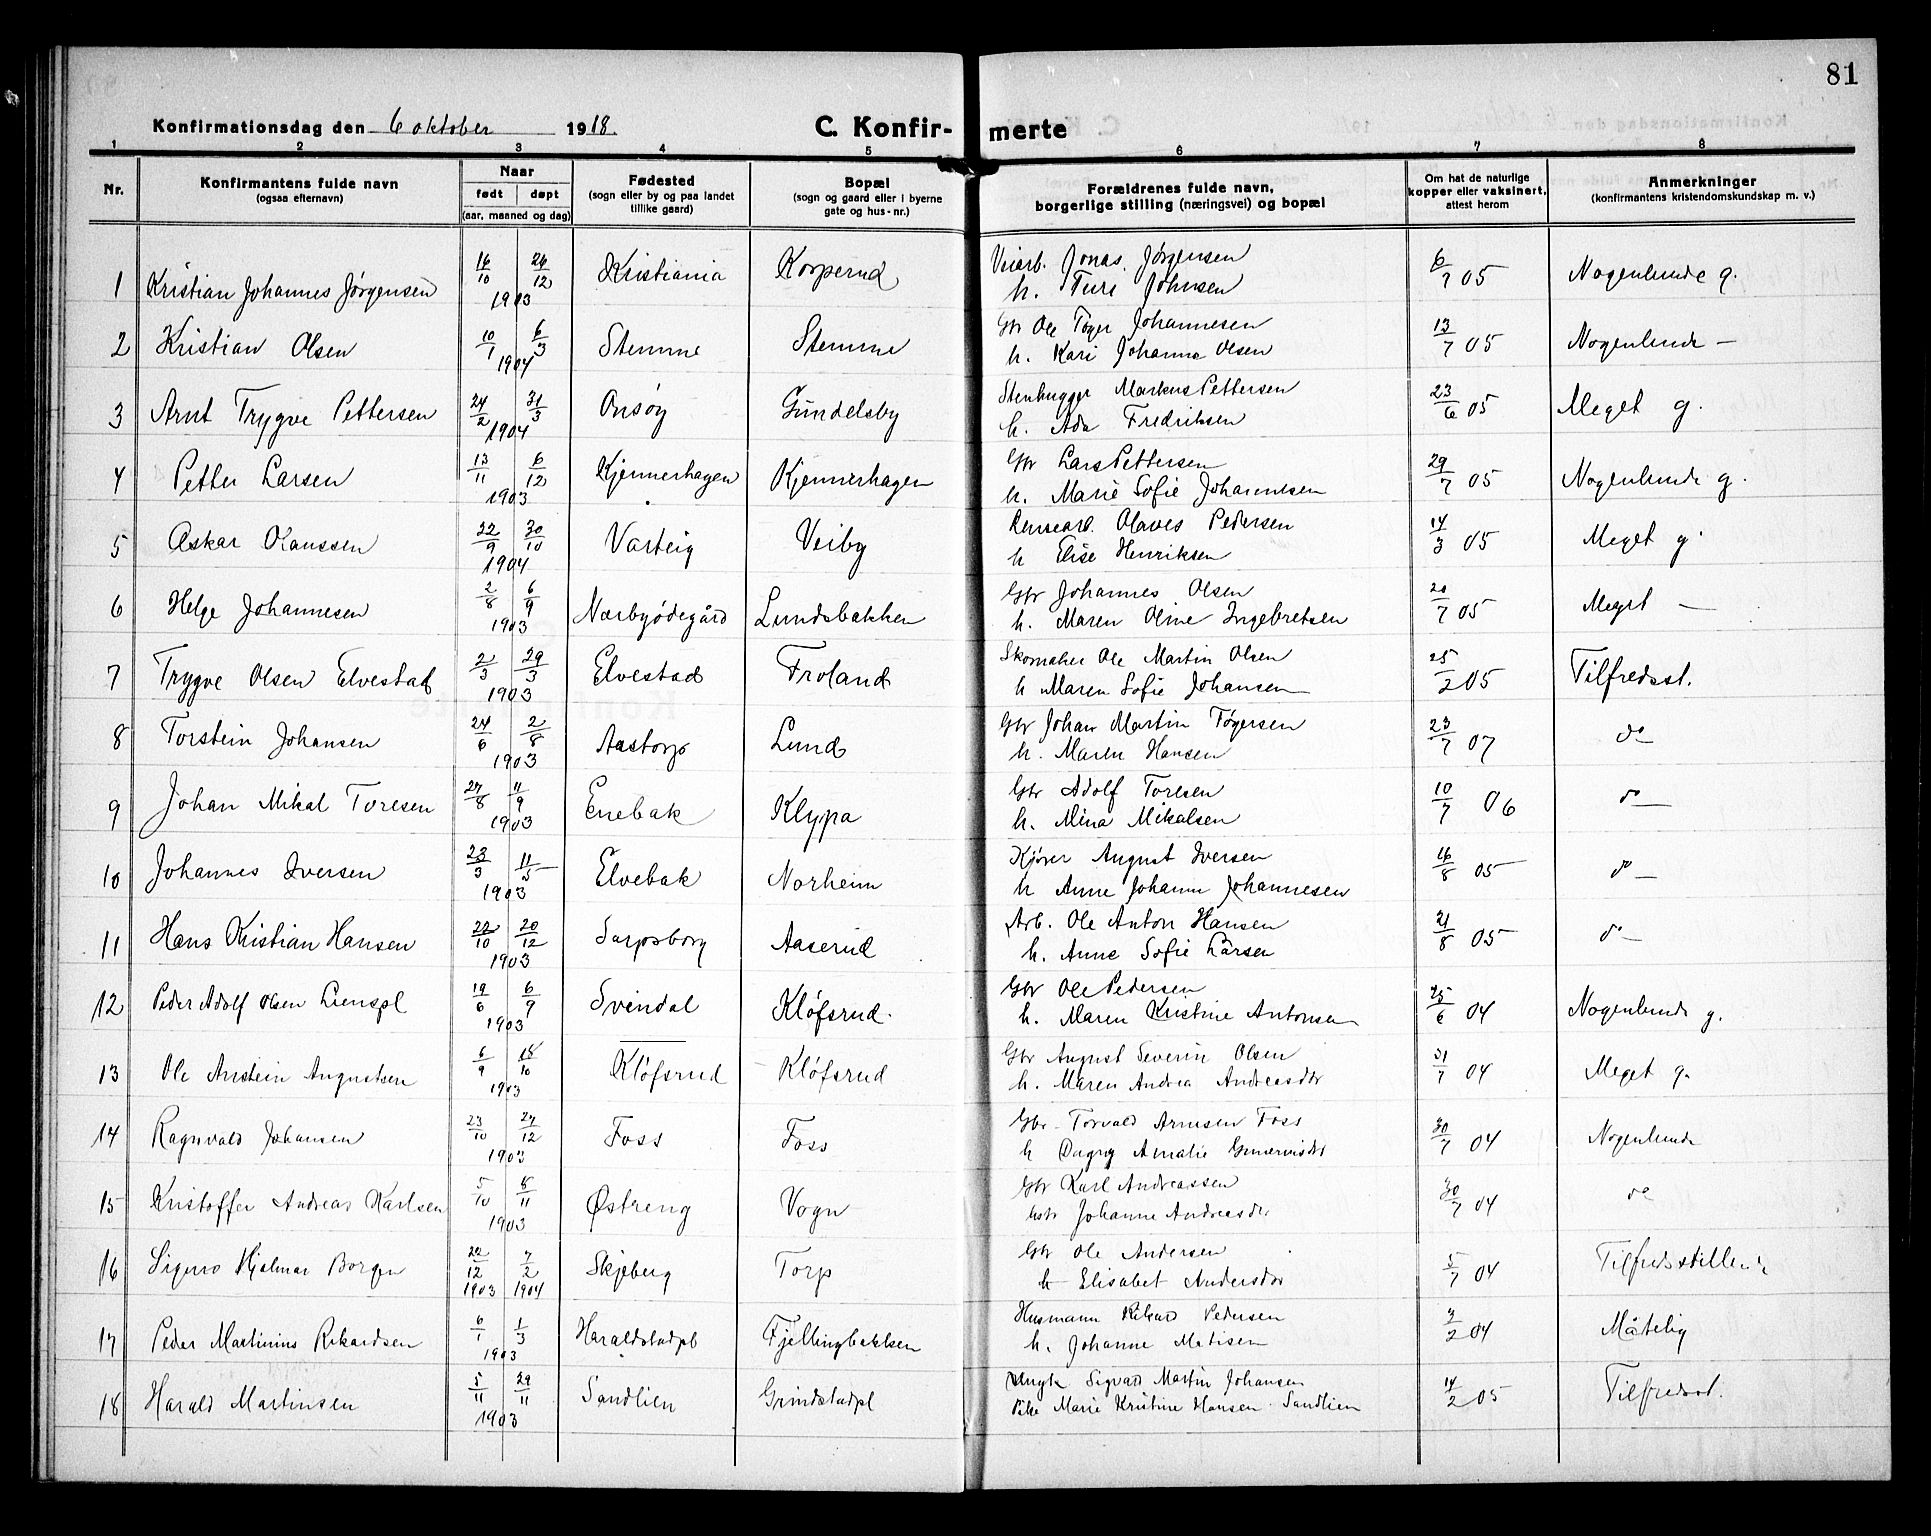 81
Konfirmationsdag den 6 oktober 1918. C. Konfir- merte
1 2 3 4 5 6 7 8
Nr. Konfirmantens fulde navn (ogsaa efternavn) Naar født døpt (aar, maaned og dag) Fødested (sogn eller by og paa landet tillike gaard) Bopæl (sogn og gaard eller i byerne gate og hus-nr.) Forældrenes fulde navn, borgerlige stilling (næringsvei) og bopæl Om hat de naturlige kopper eller vaksinert, attest herom Anmerkninger (konfirmantens kristendomskundskap m. v.)
1 Kristian Johannes Jørgensen 16/10 26/12 1903 Kristiania Korperud Veiarb. Jonas Jørgensen 6/7 05 Nogenlunde g.
h. Ture Johnsen
2 Kristian Olsen 10/1 6/3 1904 Stemme Stemme Gbr Ole Tøger Johannesen 13/7 05 Nogenlunde —
h. Kari Johanna Olsen
3 Arnt Trygve Pettersen 24/2 31/3 1904 Onsøy Gundelsby Stenhugger Markus Pettersen 23/6 05 Meget g.
h. Ada Fredriksen
4 Petter Larsen 13/11 6/12 1903 Kjennerhagen Kjennerhagen Gbr Lars Pettersen 29/7 05 Nogenlunde g.
h. Marie Sofie Johannesen
5 Oskar Olaussen 22/9 30/10 1904 Varteig Veiby Olaves Pedersen 14/3 05 Meget g.
h Elise Henriksen
6 Helge Johannesen 2/8 6/9 1903 Nærbyødegård Lundsbakken Gbr Johannes Olsen 20/7 05 Meget —
h. Maren Oline Ingebretsen
7 Trygve Olsen Elvestad 2/3 29/3 1903 Elvestad Froland Skomaker Ole Martin Olsen 25/2 05 Tilfredsst.
h Maren Sofie Johansen
8 Torstein Johansen 24/6 2/8 1903 Aastorp Lund Gbr Johan Martin Tøgersen 23/7 07 do
h. Maren Hansen
9 Johan Mikal Toresen 27/8 11/9 1903 Enebak Klypa Gbr Adolf Toresen 10/7 06 do —
h. Mina Mikalsen
10 Johannes Iversen 23/3 11/5 1903 Elvebak Norheim Kjører August Iversen 16/8 05 do —
h Anne Johanne Johannesen
11 Hans Kristian Hansen 22/10 20/12 1903 Sarpsborg Aaserud Arb. Ole Anton Hansen 21/8 05 do —
h. Anne Sofie Larsen
12 Peder Adolf Olsen Lienspl 19/6 6/9 1903 Svindal Kløfsrud. Gbr Ole Pedersen 25/6 04 Nogenlunde g.
h. Maren Kristine Antonsen
13 Ole Anstein Augustsen 6/9 18/10 1903 Kløfsrud Kløfsrud Gbr August Severin Olsen 31/7 04 Meget g.
h. Maren Andrea Andreasdtr
14 Ragnvald Johansen 23/10 27/12 1903 Foss Foss Gbr. Torvald Arnesen Foss 30/7 04 Nogenlunde
h Dagny Amalie
15 Kristoffer Andreas Karlsen 5/10 8/11 1903 Østreng Vogn Gbr Karl Andreassen 30/7 04 do
Johanne Andreasdr.
16 Sigurd Hjalmar Borgen 22/12 1903 7/2 1904 Skjeberg Torp Gbr Ole Andersen 5/7 04 Tilfredsstillende
h Elisabet Andersdtr
17 Peder Martinius Rikardsen 6/1 1/3 1903 Haraldstadpl Fjellingbakken Husmann Rikard Pedersen 3/2 04 Måtelig
h. Johanne Matisen
18 Harald Martinsen 5/11 29/11 1903 Sandlien Grindstadpl Ungk Sigvard Martin Johansen 14/2 05 Tilfredsst.
Pike Marie Kristine Hansen Sandlien